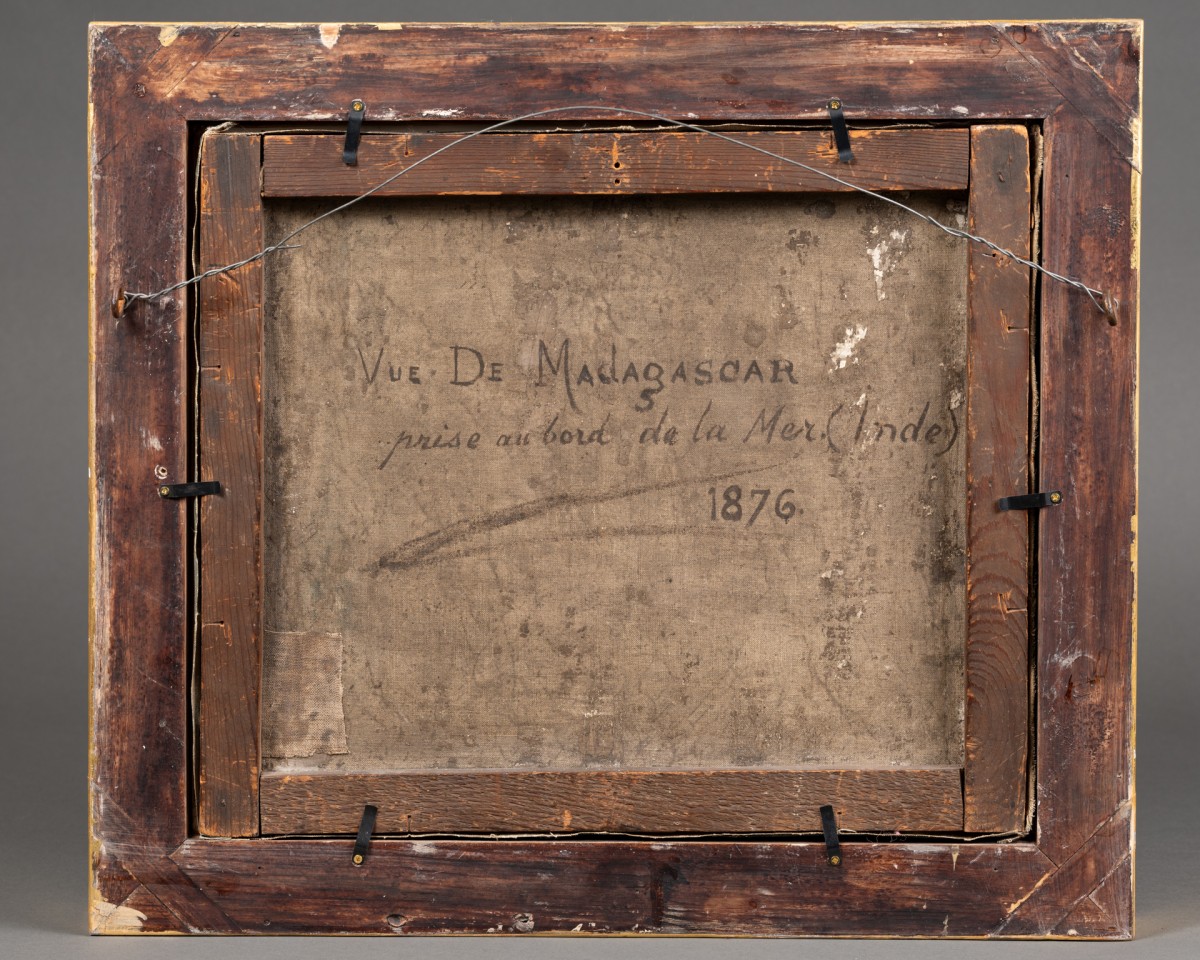 Vue De Madagascar
prise au bord de la Mer. (Inde)
1876.